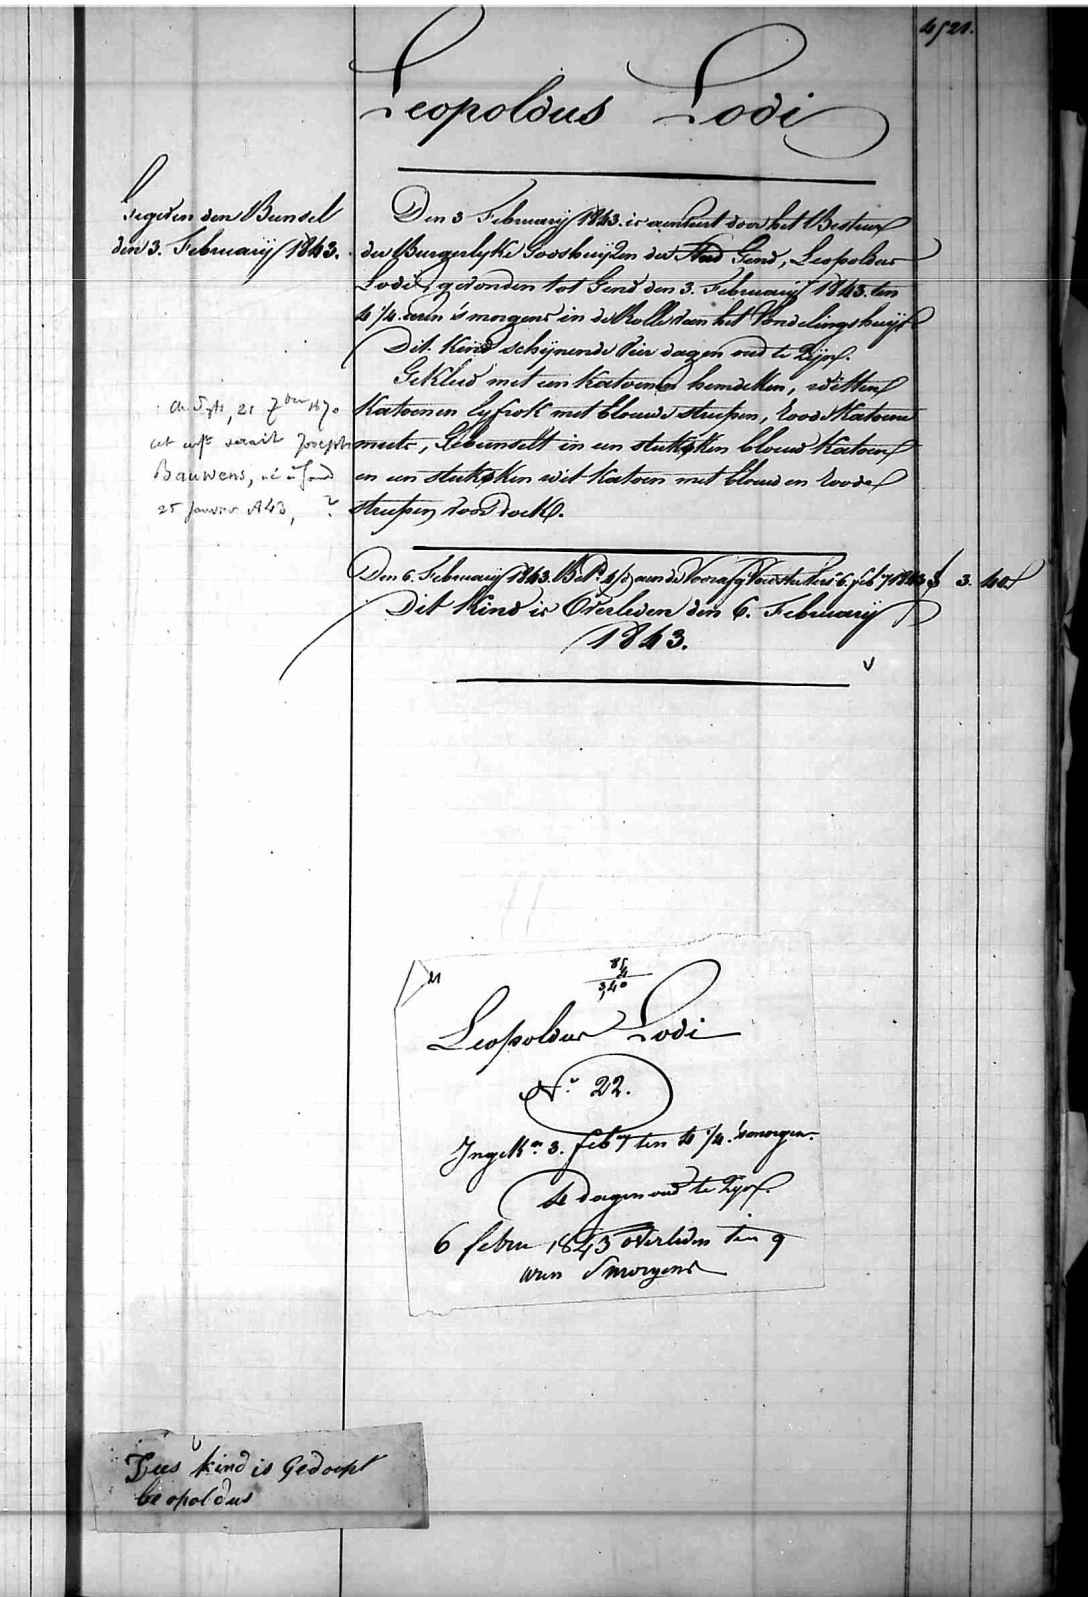 4521.
Leopoldus Lodi
Gegeven den Bunsel
den 3. Februarij 1843.
Den 3 Februarij 1843. is aenveert door het Bestuer
der Burgerlyke Godshuijzen der Stad Gend, Leopoldus
Lodi, gevonden tot Gend den 3. Februarij 1843. ten
4 1/4. uren 's morgens in de Rolle van het Vondelingshuijs
Dit Kind schijnende vier dagen oud te Zijn.
Gekleed met een Katoenen hemdeken, witten
Katoenen lyfrok met blauwe streepen, roode Katoene
muts, Gebunselt in een stuksken blauw Katoen
en een stuksken wit Katoen met blauw en roode
streepen, voor doek.
21 7bre 1870
cet enft serait Joseph
Bauwens, né à Gand
25 Janvier 1843, ?
Den 6. Februarij 1843. 6. feb 1843 3. 40
Dit Kind is Overleden den 6. Februarij
1843.
21
85
4
3,40
Leopoldus Lodi
No. 22.
Ingekn. 3. feby ten 4 1/4. 'smorgens.
4 dagen oud te Zyn.
6 febru 1843 overleden ten 9
uren Smorgens
Dees kind is Gedoopt
leopoldus